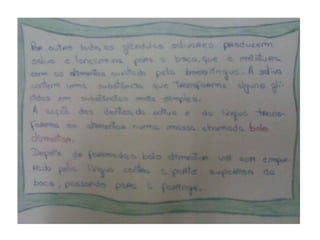 Por outro lado, as glândulas salivares produzem
saliva e lançam-na para a boca, que a mistura
com os alimentos ajudado pela língua. A saliva
contém uma substância que transforma alguns glí-
cidos em substâncias mais simples.
A ação dos dentes, da saliva e da língua trans-
forma os alimentos numa massa chamada bolo
alimentar.
Depois de formado, o bolo alimentar vai ser empur-
rado pela língua contra a parte superior da
boca, passando para a faringe.